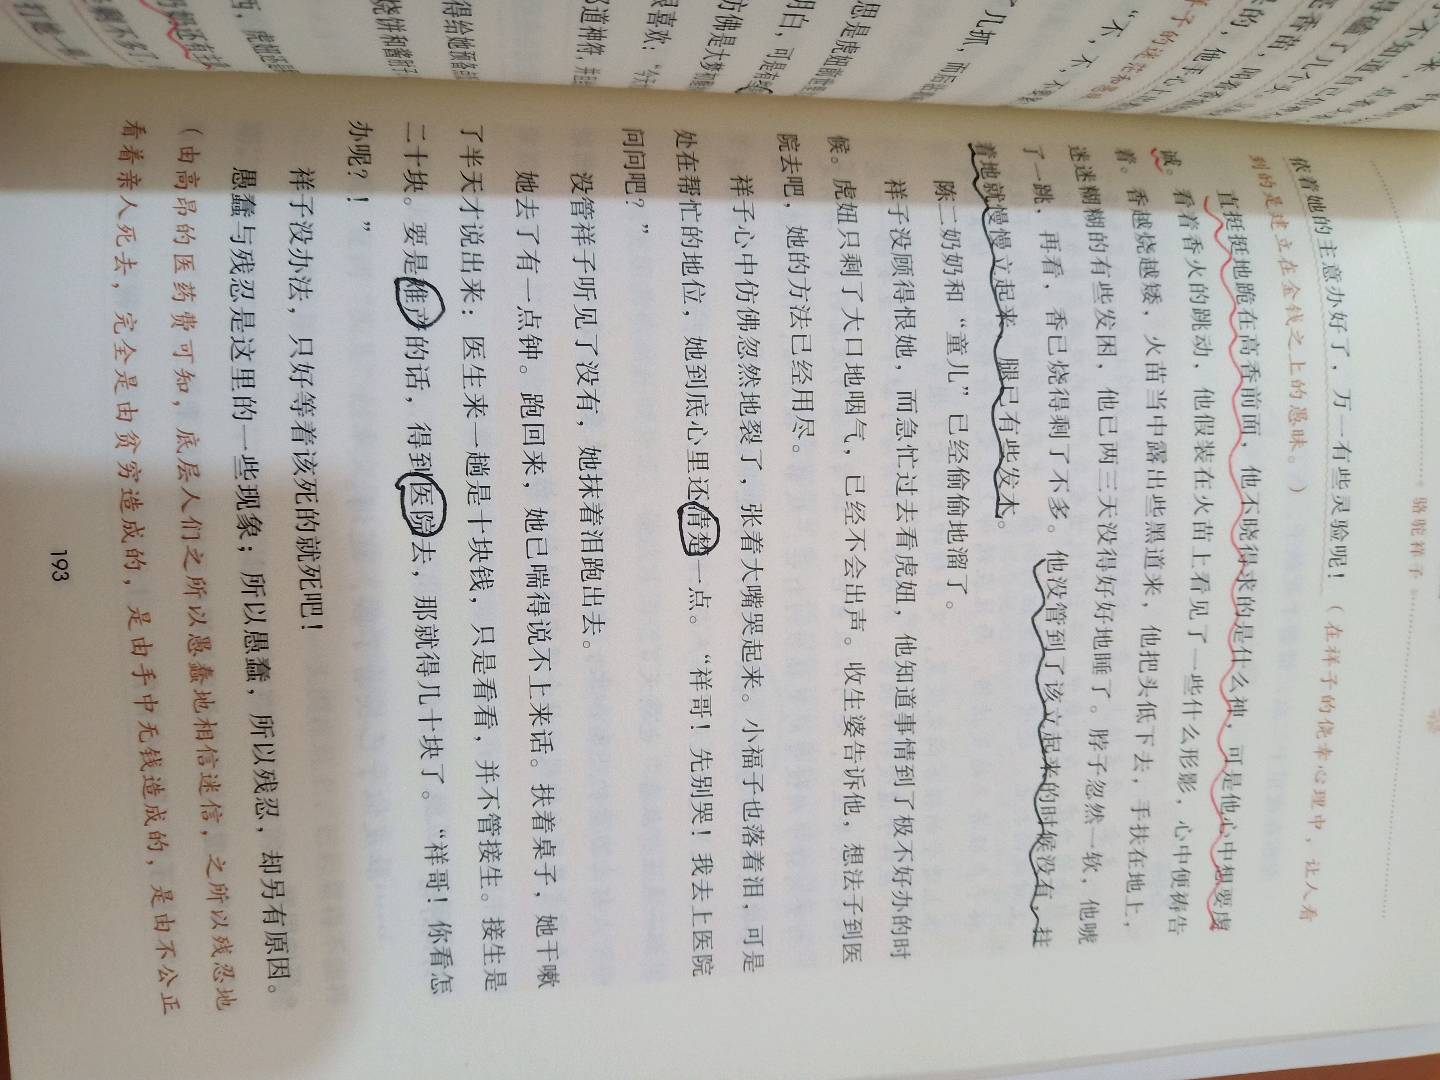 骆驼祥子
依着她的主意办好了，万一有些灵验呢！（在祥子的侥幸心理中，让人看
到的是建立在金钱之上的愚昧。）
直挺挺地跪在高香前面，他不晓得求的是什么神，可是他心中想要虔
诚。看着香火的跳动，他假装在火苗上看见了一些什么形影，心中便祷告
着。香越烧越矮，火苗当中露出些黑道来，他把头低下去，手扶在地上，
迷迷糊糊的有些发困，他已两三天没得好好地睡了。脖子忽然一软，他唬
了一跳，再看，香已烧得剩了不多。他没管到了该立起来的时候没有，拄
着地就慢慢立起来，腿已有些发木。
陈二奶奶和“童儿”已经偷偷地溜了。
祥子没顾得恨她，而急忙过去看虎妞，他知道事情到了极不好办的时
候。虎妞只剩了大口地咽气，已经不会出声。收生婆告诉他，想法子到医
院去吧，她的方法已经用尽。
祥子心中仿佛忽然地裂了，张着大嘴哭起来。小福子也落着泪，可是
处在帮忙的地位，她到底心里还清楚一点。“祥哥！先别哭！我去上医院
问问吧？”
没管祥子听见了没有，她抹着泪跑出去。
她去了有一点钟。跑回来，她已喘得说不上来话。扶着桌子，她干嗽
了半天才说出来：医生来一趟是十块钱，只是看看，并不管接生。接生是
二十块。要是难产的话，得到医院去，那就得几十块了。“祥哥！你看怎
办呢？！”
祥子没办法，只好等着该死的就死吧！
愚蠢与残忍是这里的一些现象；所以愚蠢，所以残忍，却另有原因。
（由高昂的医药费可知，底层人们之所以愚蠢地相信迷信，之所以残忍地
看着亲人死去，完全是由贫穷造成的，是由手中无钱造成的，是由不公正
193